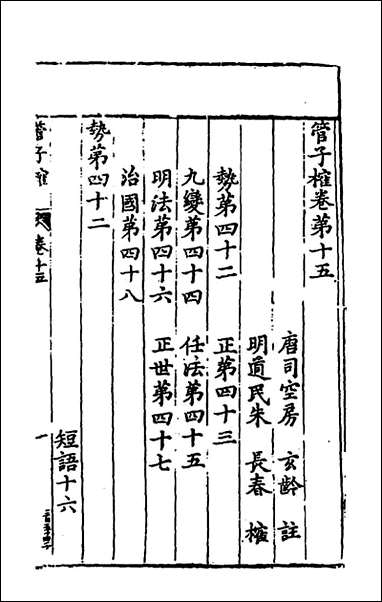 管子榷卷第十五
唐司空房 玄齡 註
明道民朱 長春 榷
勢第四十二 正第四十三
九變第四十四 任法第四十五
明法第四十六 正世第四十七
治國第四十八
勢第四十二 短語十六
管子榷 卷十五 一